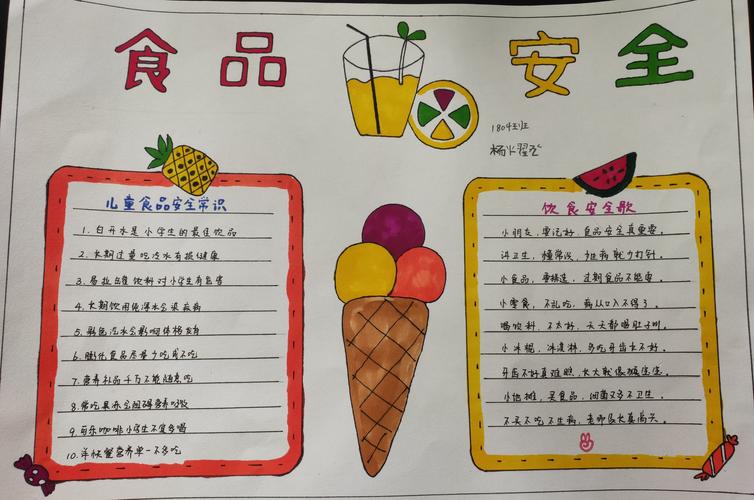 食品安全
1804班
杨
儿童食品安全常识
1. 白开水是小学生的最佳饮品
2. 长期过量吃冷水有损健康
3. 易拉罐饮料对小学生有危害
4. 长期饮用纯净水会染疾病
5. 彩色汽水会影响体格发育
6. 膨化食品尽量少吃或不吃
7. 营养补品千万不能随意吃
8. 常吃果冻会阻碍营养吸收
9. 可乐咖啡小学生不宜多喝
10. 洋快餐营养单一不多吃
饮食安全歌
小朋友，要记好，食品安全真重要。
讲卫生，懂常识，
小食品，要精选，过期食品不能要。
小零食，不乱吃，病从口入不得了。
喝饮料，不太好，天天都喝肚子叫。
小冰棍，冰淇淋，多吃开齿太不好。
小地摊，买食品，细菌又多不卫生。
不买不吃不生病，老师家长真高兴。